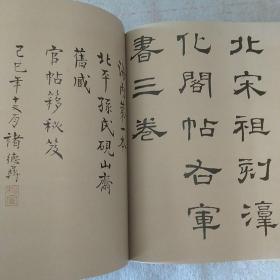 北宋祖刻淳
化閣帖右軍
書三卷
海內第一本
北平孫氏硯山齋
舊臧
官帖移秘笈
己巳年六月褚德彝